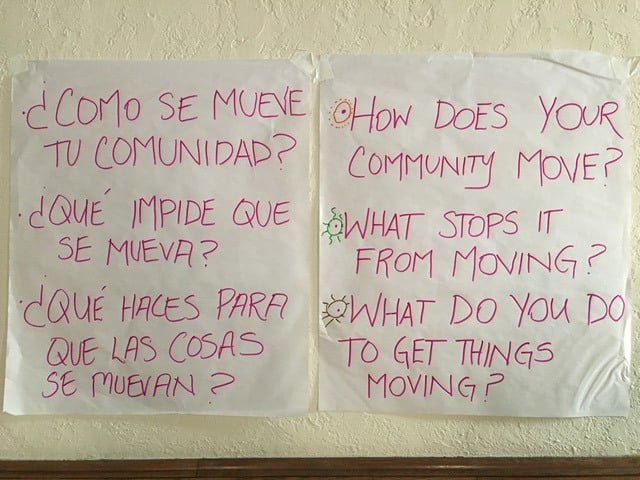 ·¿COMO SE MUEVE
TU COMUNIDAD?
·¿QUÉ IMPIDE QUE
SE MUEVA?
·¿QUÉ HACES PARA
QUE LAS COSAS
SE MUEVAN?
HOW DOES YOUR
COMMUNITY MOVE?
WHAT STOPS IT
FROM MOVING?
WHAT DO YOU DO
TO GET THINGS
MOVING?